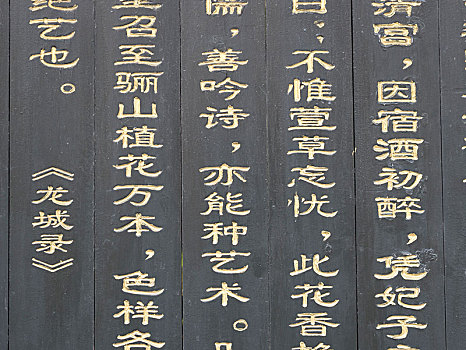 清宫，因宿酒初醉，凭妃子
曰：不惟萱草忘忧，此花香
儒，善吟诗，亦能种艺术。
皇召至骊山植花万本，色样各
绝艺也。《龙城录》